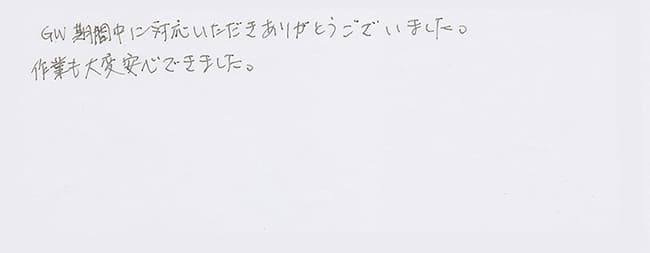 GW期間中に対応いただきありがとうございました。
作業も大変安心できました。